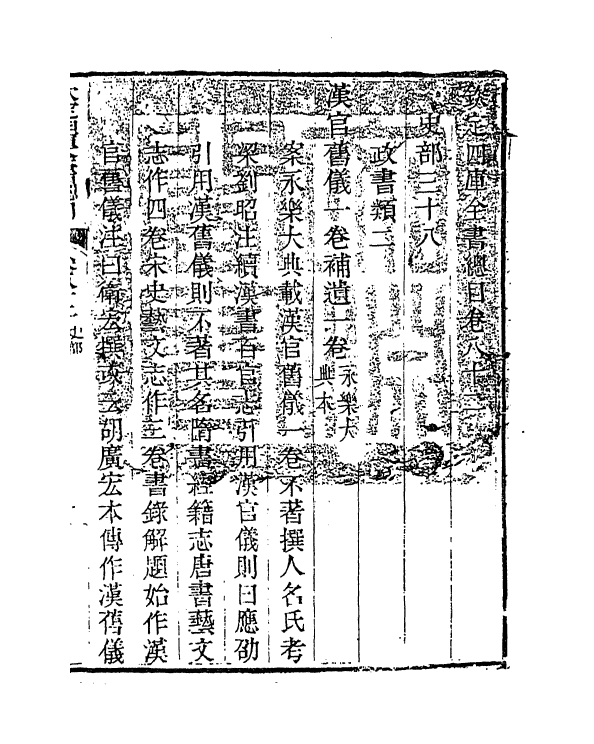 欽定四庫全書總目卷八十二
史部三十八
政書類二
漢官舊儀一卷補遺一卷永樂大典本
案永樂大典載漢官舊儀一卷不著撰人名氏考
梁劉昭注續漢書百官志引用漢官儀則曰應劭
引用漢舊儀則不著其名隋書經籍志唐書藝文
志作四卷宋史藝文志作三卷書錄解題始作漢
官舊儀注曰衛宏撰或云胡廣宏本傳作漢舊儀